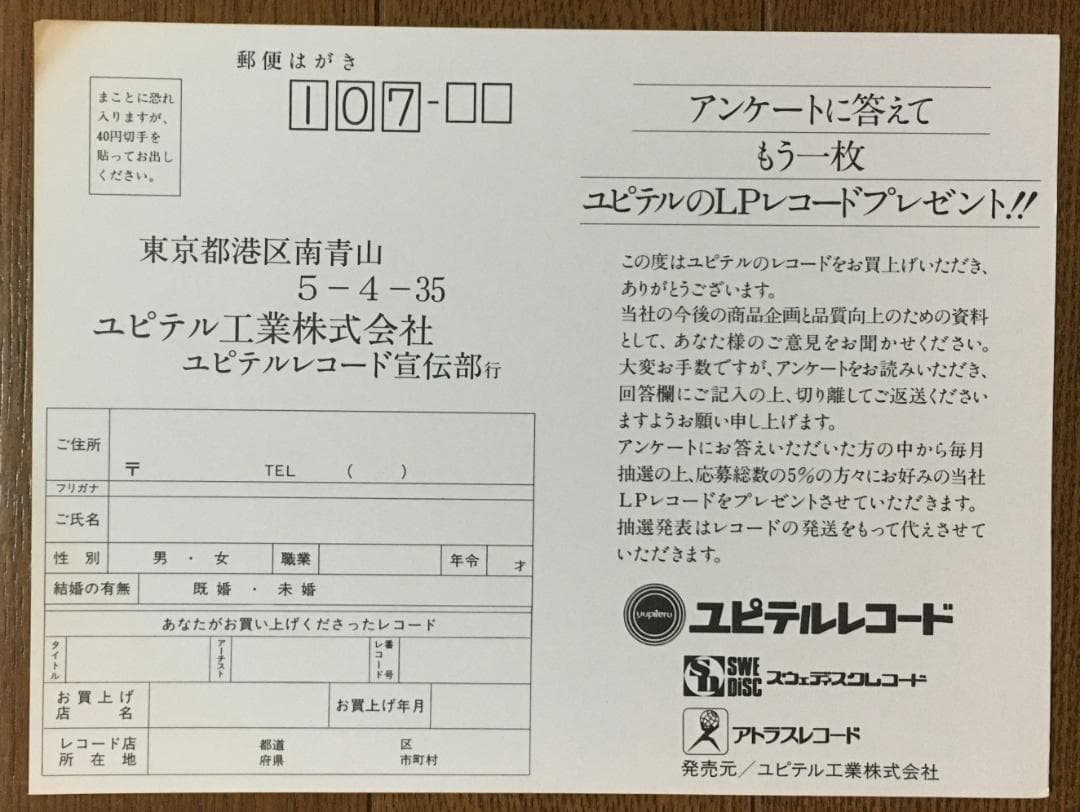 郵便はがき
107-
まことに恐れ
入りますが、
40円切手を
貼ってお出し
ください。
東京都港区南青山
5-4-35
ユピテル工業株式会社
ユピテルレコード宣伝部行
ご住所
〒 TEL ( )
フリガナ
ご氏名
性別 男・女 職業 年令 才
結婚の有無 既婚・未婚
あなたがお買い上げくださったレコード
タイトル アーチスト レコード番号
お買上げ店名 お買上げ年月
レコード店所在地 都道府県 区市町村
アンケートに答えて
もう一枚
ユピテルのLPレコードプレゼント!!
この度はユピテルのレコードをお買上げいただき、
ありがとうございます。
当社の今後の商品企画と品質向上のための資料
として、あなた様のご意見をお聞かせください。
大変お手数ですが、アンケートをお読みいただき、
回答欄にご記入の上、切り離してご返送ください
ますようお願い申し上げます。
アンケートにお答えいただいた方の中から毎月
抽選の上、応募総数の5%の方々にお好みの当社
LPレコードをプレゼントさせていただきます。
抽選発表はレコードの発送をもって代えさせて
いただきます。
yupiteru ユピテルレコード
SD SWE DISC スウェディスクレコード
アトラスレコード
発売元/ユピテル工業株式会社